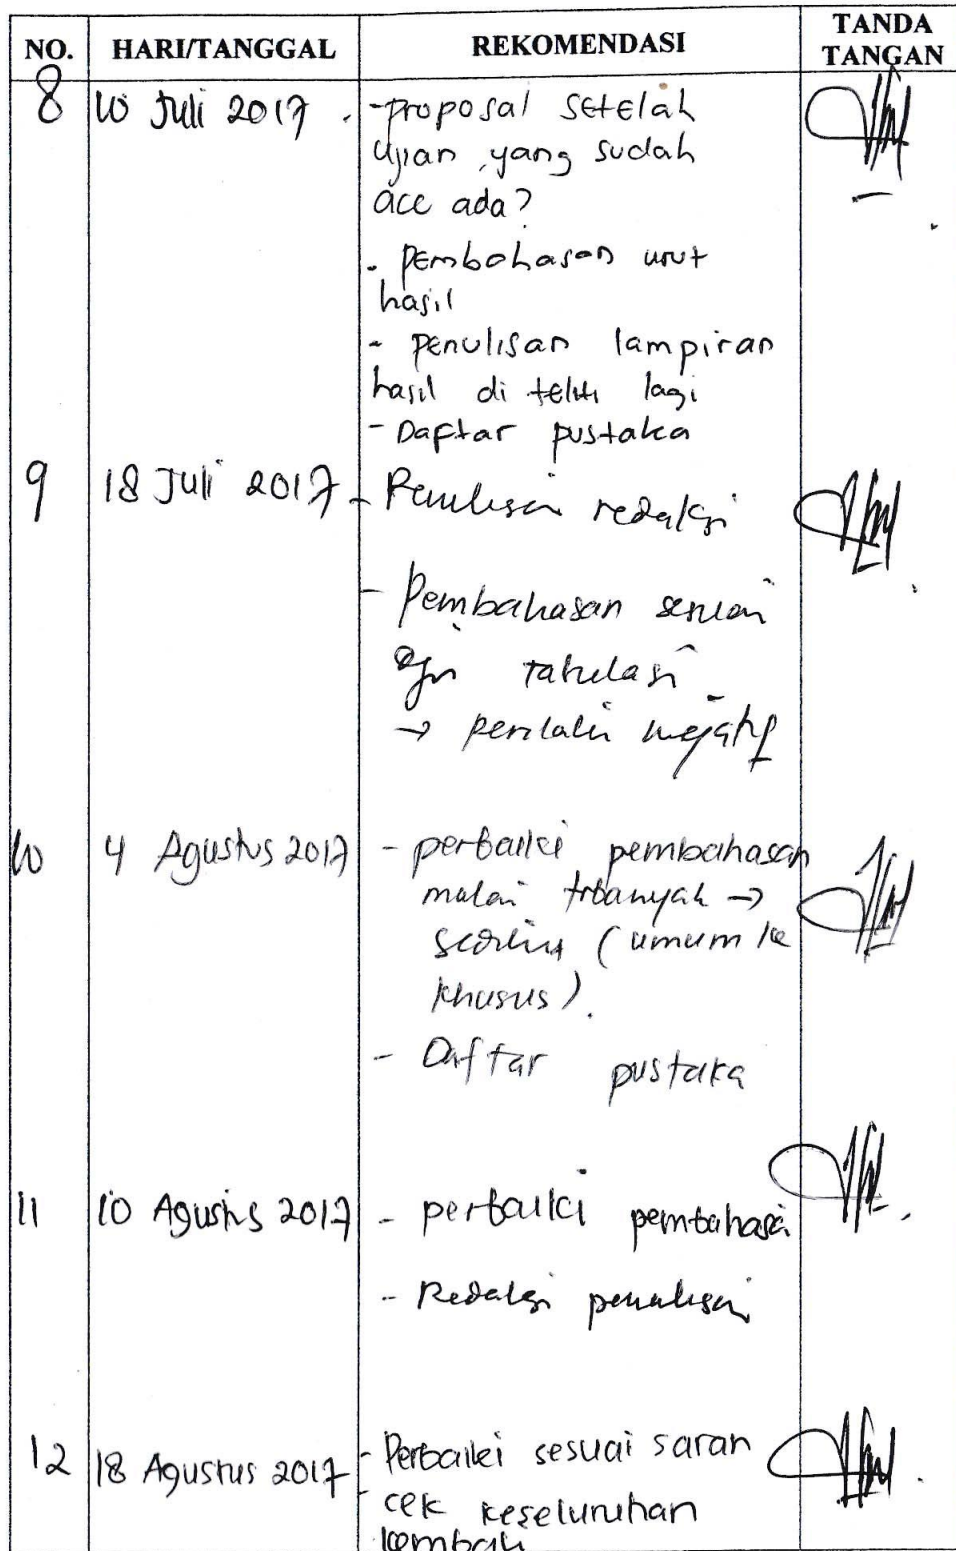 NO. HARI/TANGGAL REKOMENDASI TANDA TANGAN
8 10 Juli 2017 . -proposal setelah
ujian, yang sudah
acc ada?
- pembahasan urut
hasil
- penulisan lampiran
hasil di teliti lagi
- Daftar pustaka
9 18 Juli 2017 - Penulisan redaksi
- Pembahasan sesuai
dgn tabulasi
→ perilaku negatif
10 4 Agustus 2017 - perbaiki pembahasan
mulai trbanyak →
(umum ke
khusus).
- Daftar pustaka
11 10 Agustus 2017 - perbaiki pembahasan
- Redaksi penulisan
12 18 Agustus 2017 - Perbaiki sesuai saran
- cek keseluruhan
kembali